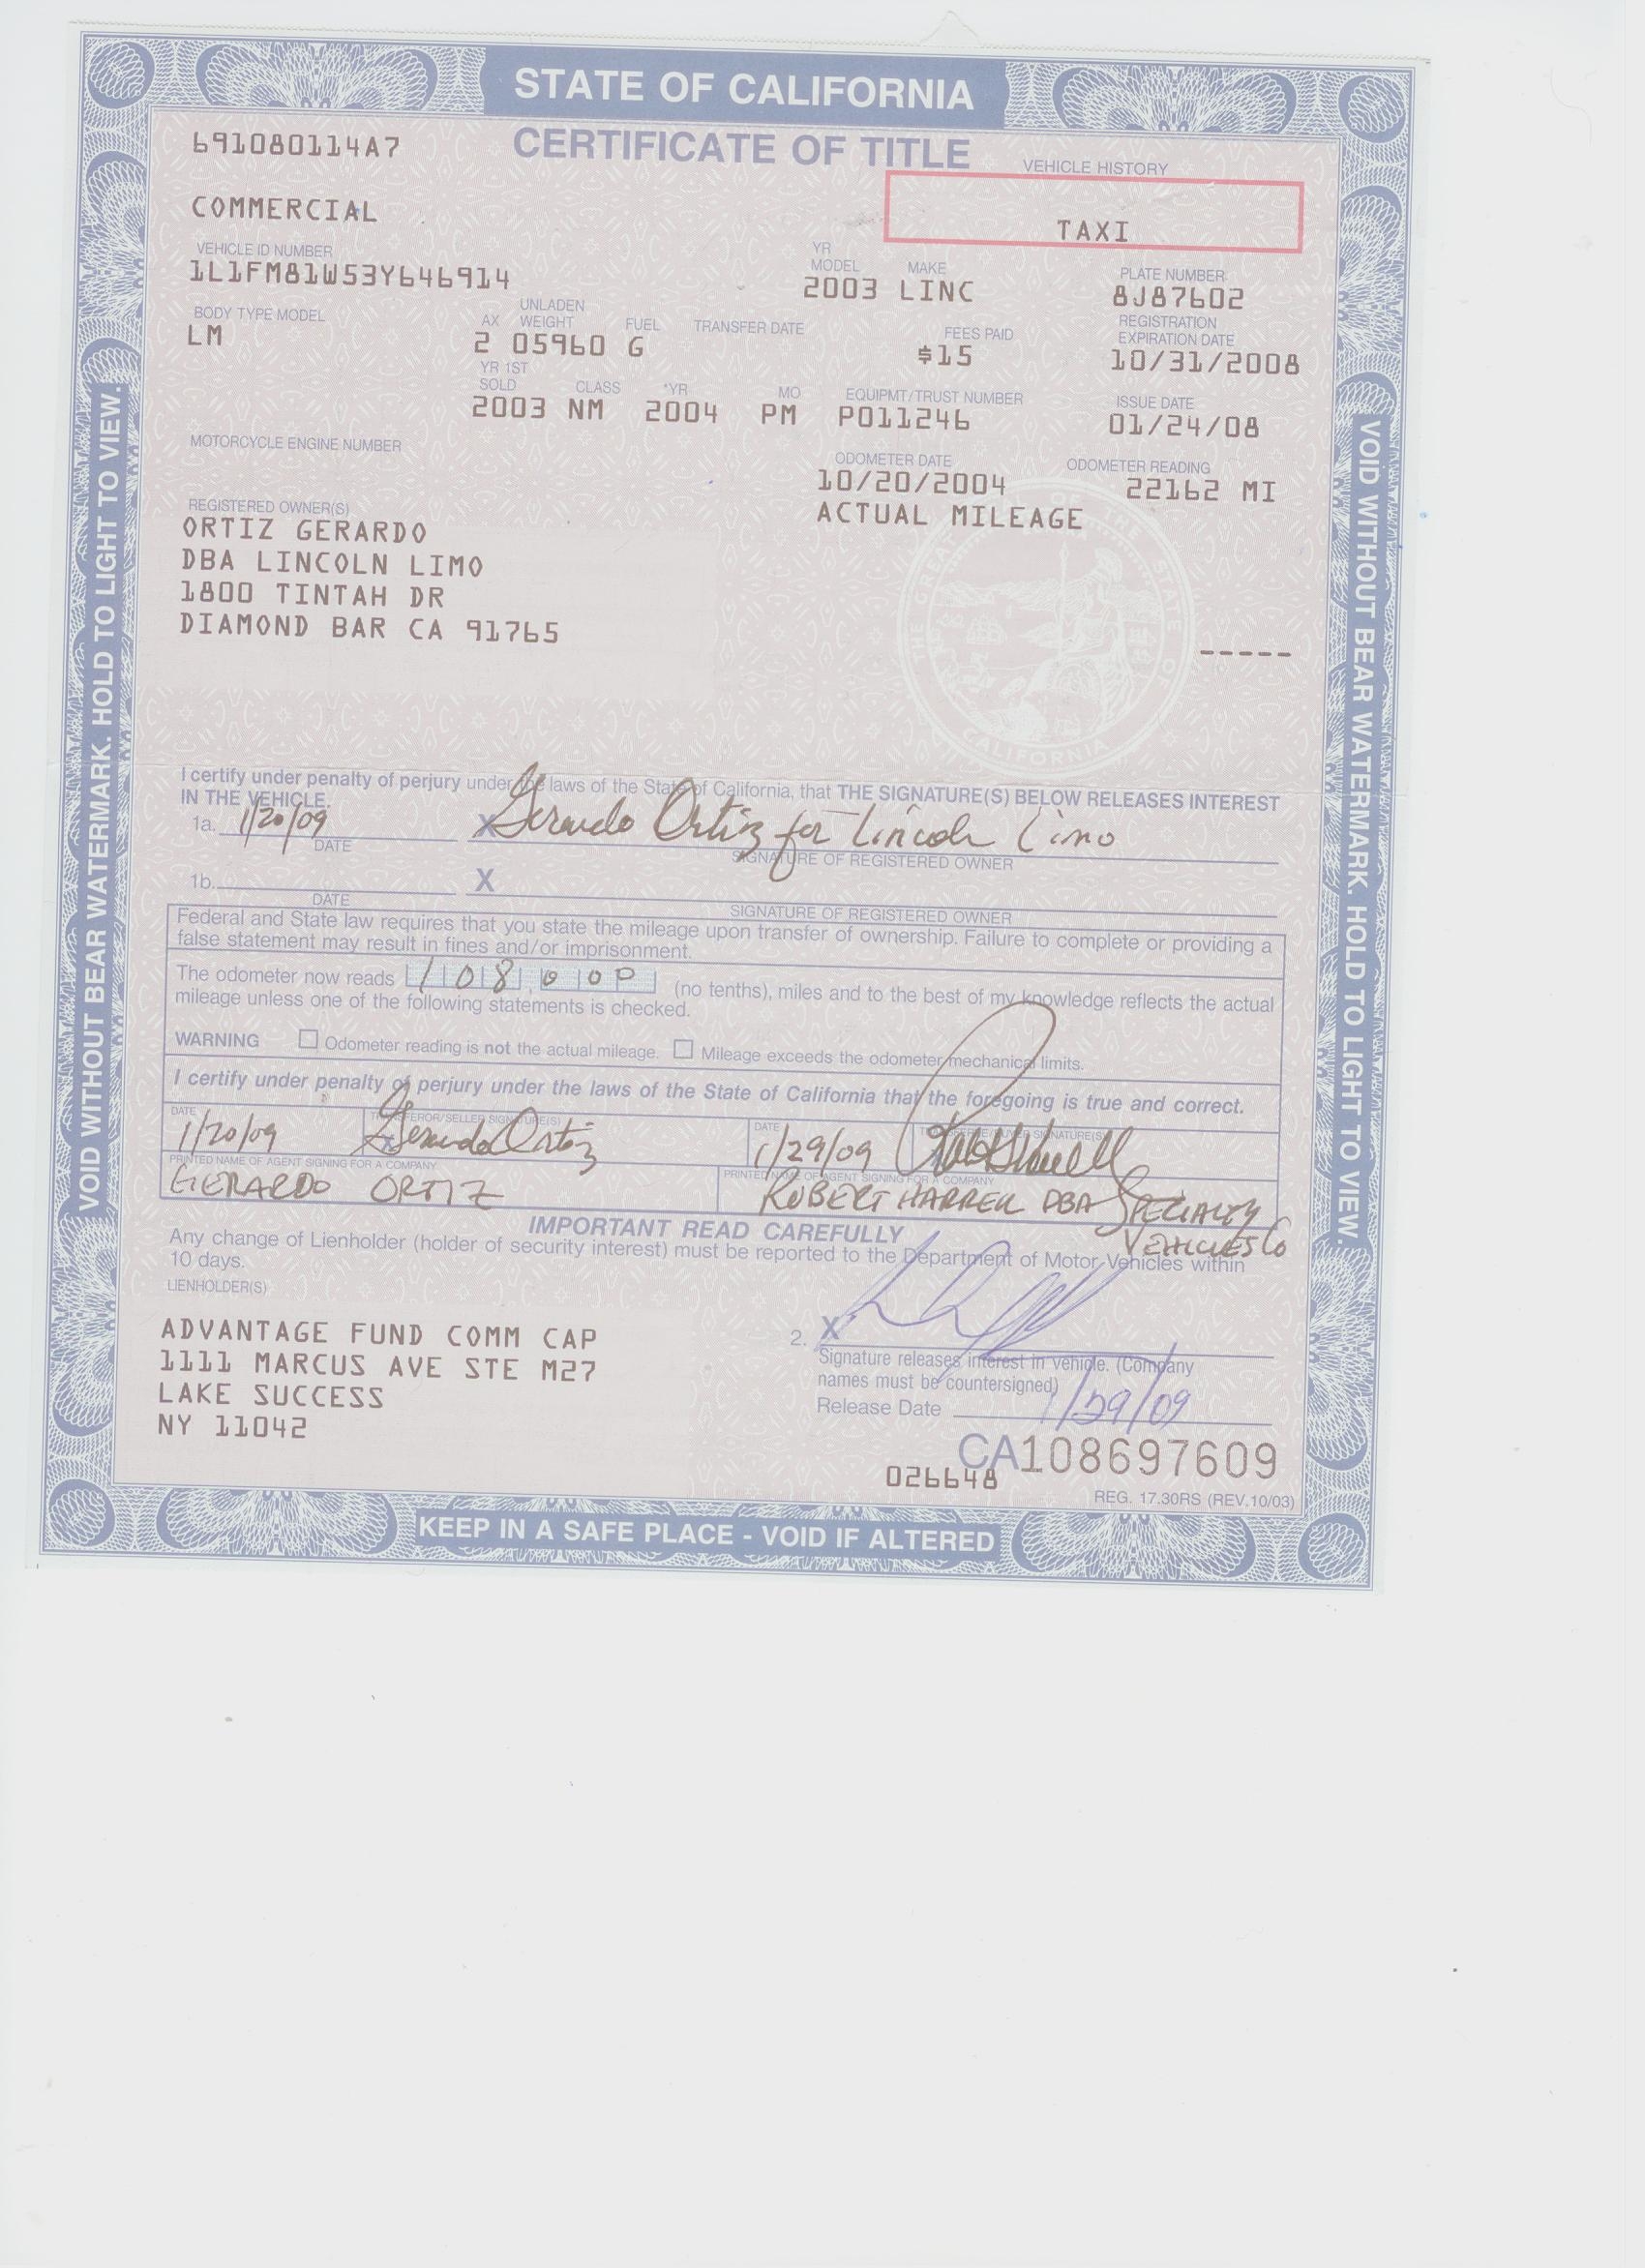 STATE OF CALIFORNIA
CERTIFICATE OF TITLE
691080114A7
VEHICLE HISTORY
COMMERCIAL
TAXI
VEHICLE ID NUMBER
1L1FM81W53Y646914
YR MODEL
2003
MAKE
LINC
PLATE NUMBER
8J87602
BODY TYPE MODEL
LM
AX
2
UNLADEN WEIGHT
05960
FUEL
G
TRANSFER DATE
FEES PAID
$15
REGISTRATION EXPIRATION DATE
10/31/2008
YR 1ST SOLD
2003
CLASS
NM
*YR
2004
MO
PM
EQUIPMT/TRUST NUMBER
P011246
ISSUE DATE
01/24/08
MOTORCYCLE ENGINE NUMBER
ODOMETER DATE
10/20/2004
ODOMETER READING
22162 MI
ACTUAL MILEAGE
REGISTERED OWNER(S)
ORTIZ GERARDO
DBA LINCOLN LIMO
1800 TINTAH DR
DIAMOND BAR CA 91765
-----
I certify under penalty of perjury under the laws of the State of California, that THE SIGNATURE(S) BELOW RELEASES INTEREST
IN THE VEHICLE.
1a. 1/20/09 X Gerardo Ortiz for Lincoln Limo
DATE SIGNATURE OF REGISTERED OWNER
1b. X
DATE SIGNATURE OF REGISTERED OWNER
Federal and State law requires that you state the mileage upon transfer of ownership. Failure to complete or providing a
false statement may result in fines and/or imprisonment.
The odometer now reads 108,000 (no tenths), miles and to the best of my knowledge reflects the actual
mileage unless one of the following statements is checked.
WARNING Odometer reading is not the actual mileage. Mileage exceeds the odometer mechanical limits.
I certify under penalty of perjury under the laws of the State of California that the foregoing is true and correct.
DATE TRANSFEROR/SELLER SIGNATURE(S) DATE
1/20/09 Gerardo Ortiz 1/29/09
PRINTED NAME OF AGENT SIGNING FOR A COMPANY PRINTED NAME OF AGENT SIGNING FOR A COMPANY
GERARDO ORTIZ ROBERT HARRELL DBA SPECIALTY
VEHICLES Co
IMPORTANT READ CAREFULLY
Any change of Lienholder (holder of security interest) must be reported to the Department of Motor Vehicles within
10 days.
LIENHOLDER(S)
ADVANTAGE FUND COMM CAP
1111 MARCUS AVE STE M27
LAKE SUCCESS
NY 11042
2. X
Signature releases interest in vehicle. (Company
names must be countersigned)
Release Date 1/29/09
CA108697609
026648
REG. 17.30RS (REV.10/03)
KEEP IN A SAFE PLACE - VOID IF ALTERED
VOID WITHOUT BEAR WATERMARK. HOLD TO LIGHT TO VIEW.
VOID WITHOUT BEAR WATERMARK. HOLD TO LIGHT TO VIEW.